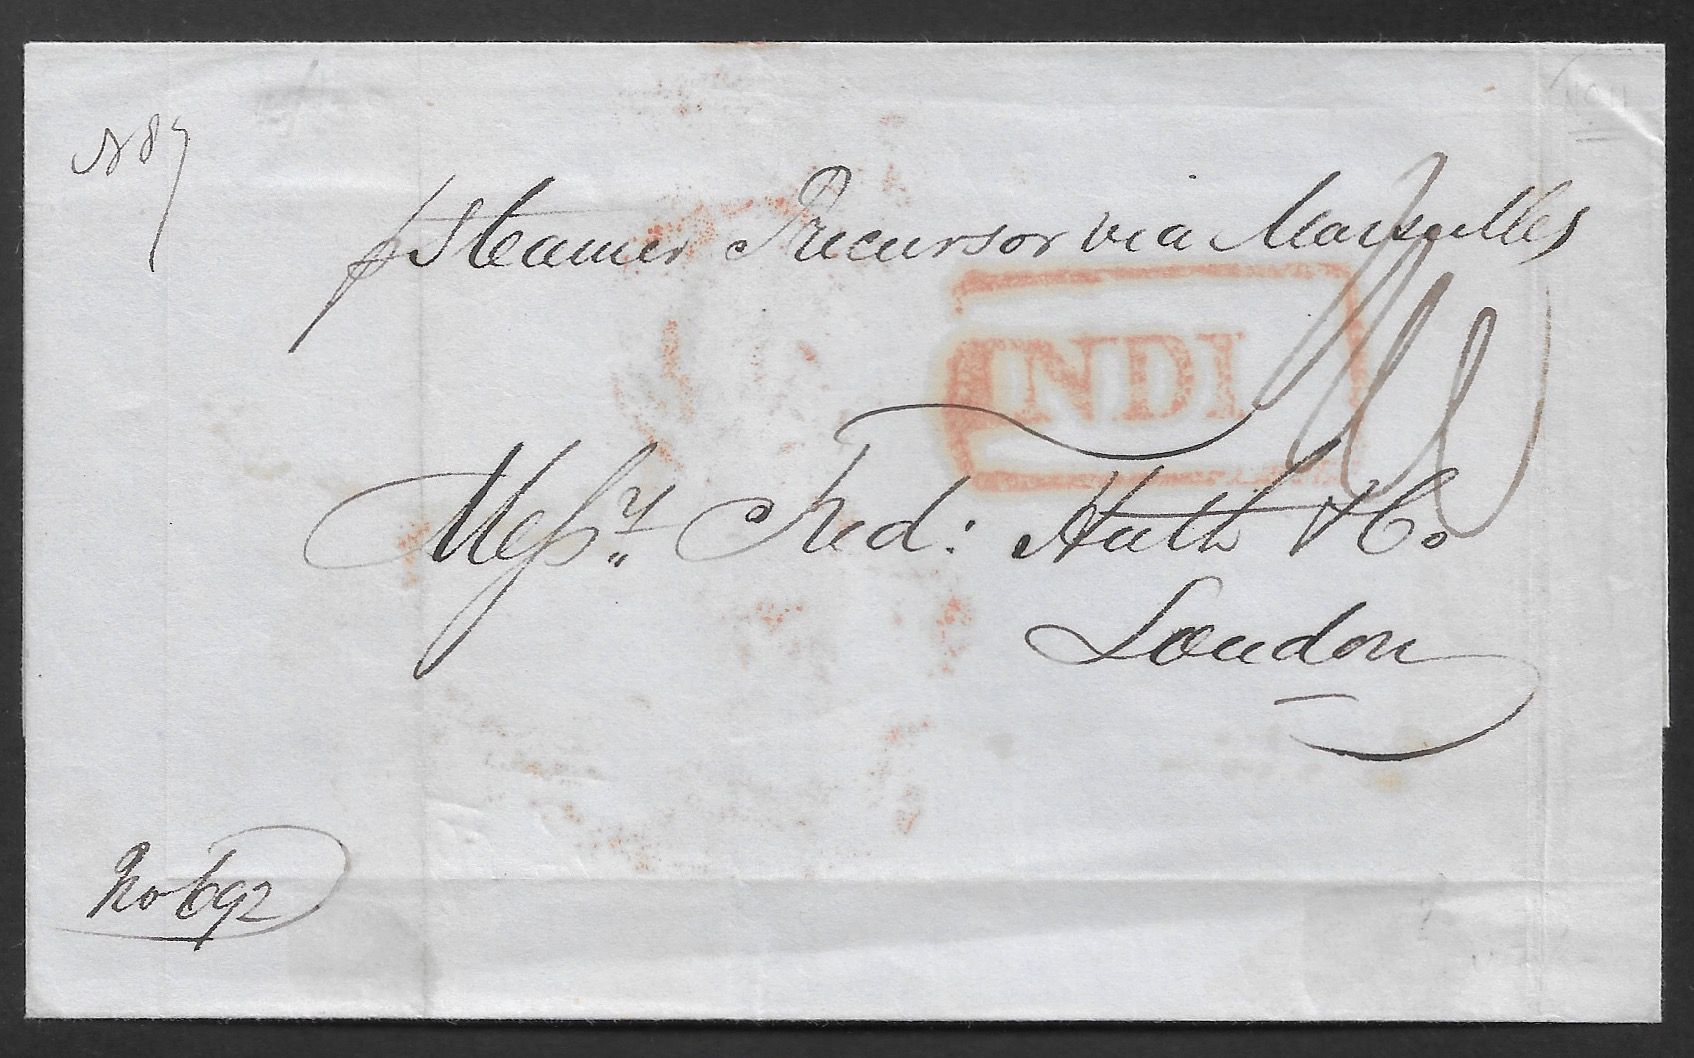 N 87
p Steamer Precursor via Marseilles
INDI
Messrs. Fred: Huth & Co
London
No 692